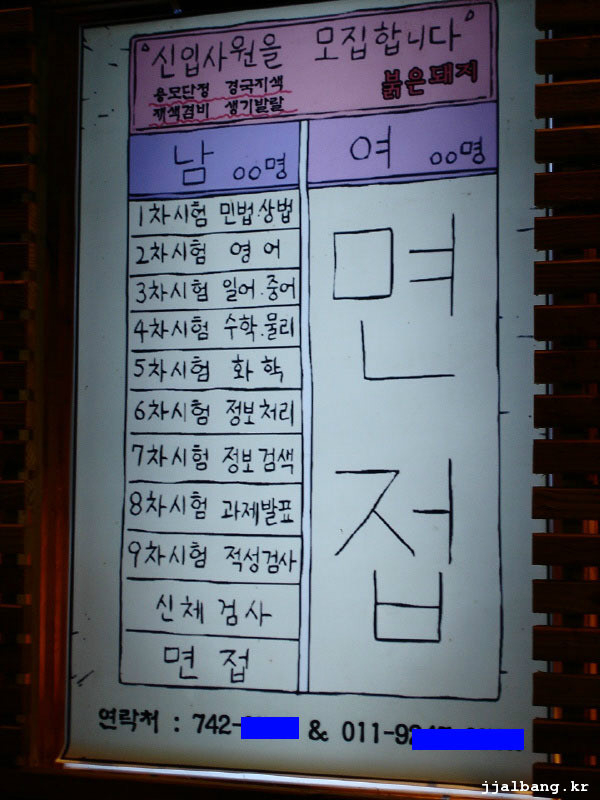 "신입사원을 모집합니다"
용모단정 경국지색
재색겸비 생기발랄
붉은돼지
남 00명
여 00명
1차시험 민법.상법
2차시험 영어
3차시험 일어.중어
4차시험 수학.물리
5차시험 화학
6차시험 정보처리
7차시험 정보검색
8차시험 과제발표
9차시험 적성검사
신체검사
면접
면접
연락처 : 742- & 011-92
jjalbang.kr